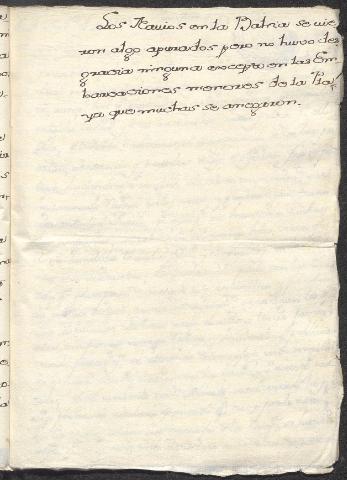 Los Navios en la Bahia se vie
ron algo apurados pero no huvo des
gracia ninguna excepto en las Em
barcaciones menores de la Pla
ya que muchas se anegaron.